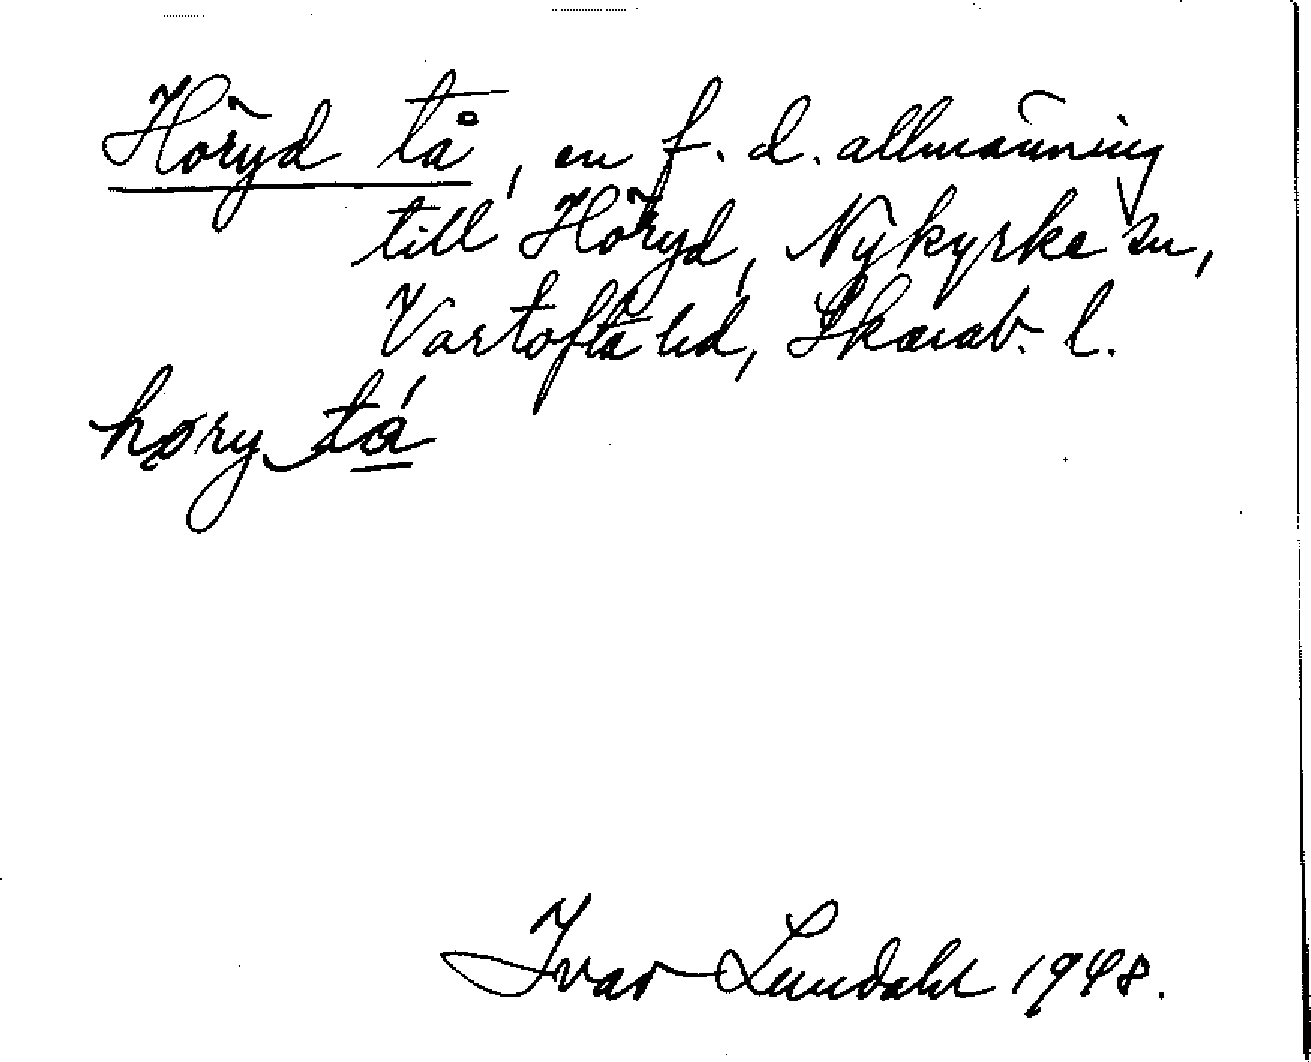 Höryd tå, en f. d. allmänning
till Höryd, Nykyrke sn,
Vartofta hd, Skarab. l.
høry tá
Ivar Lundahl 1948.